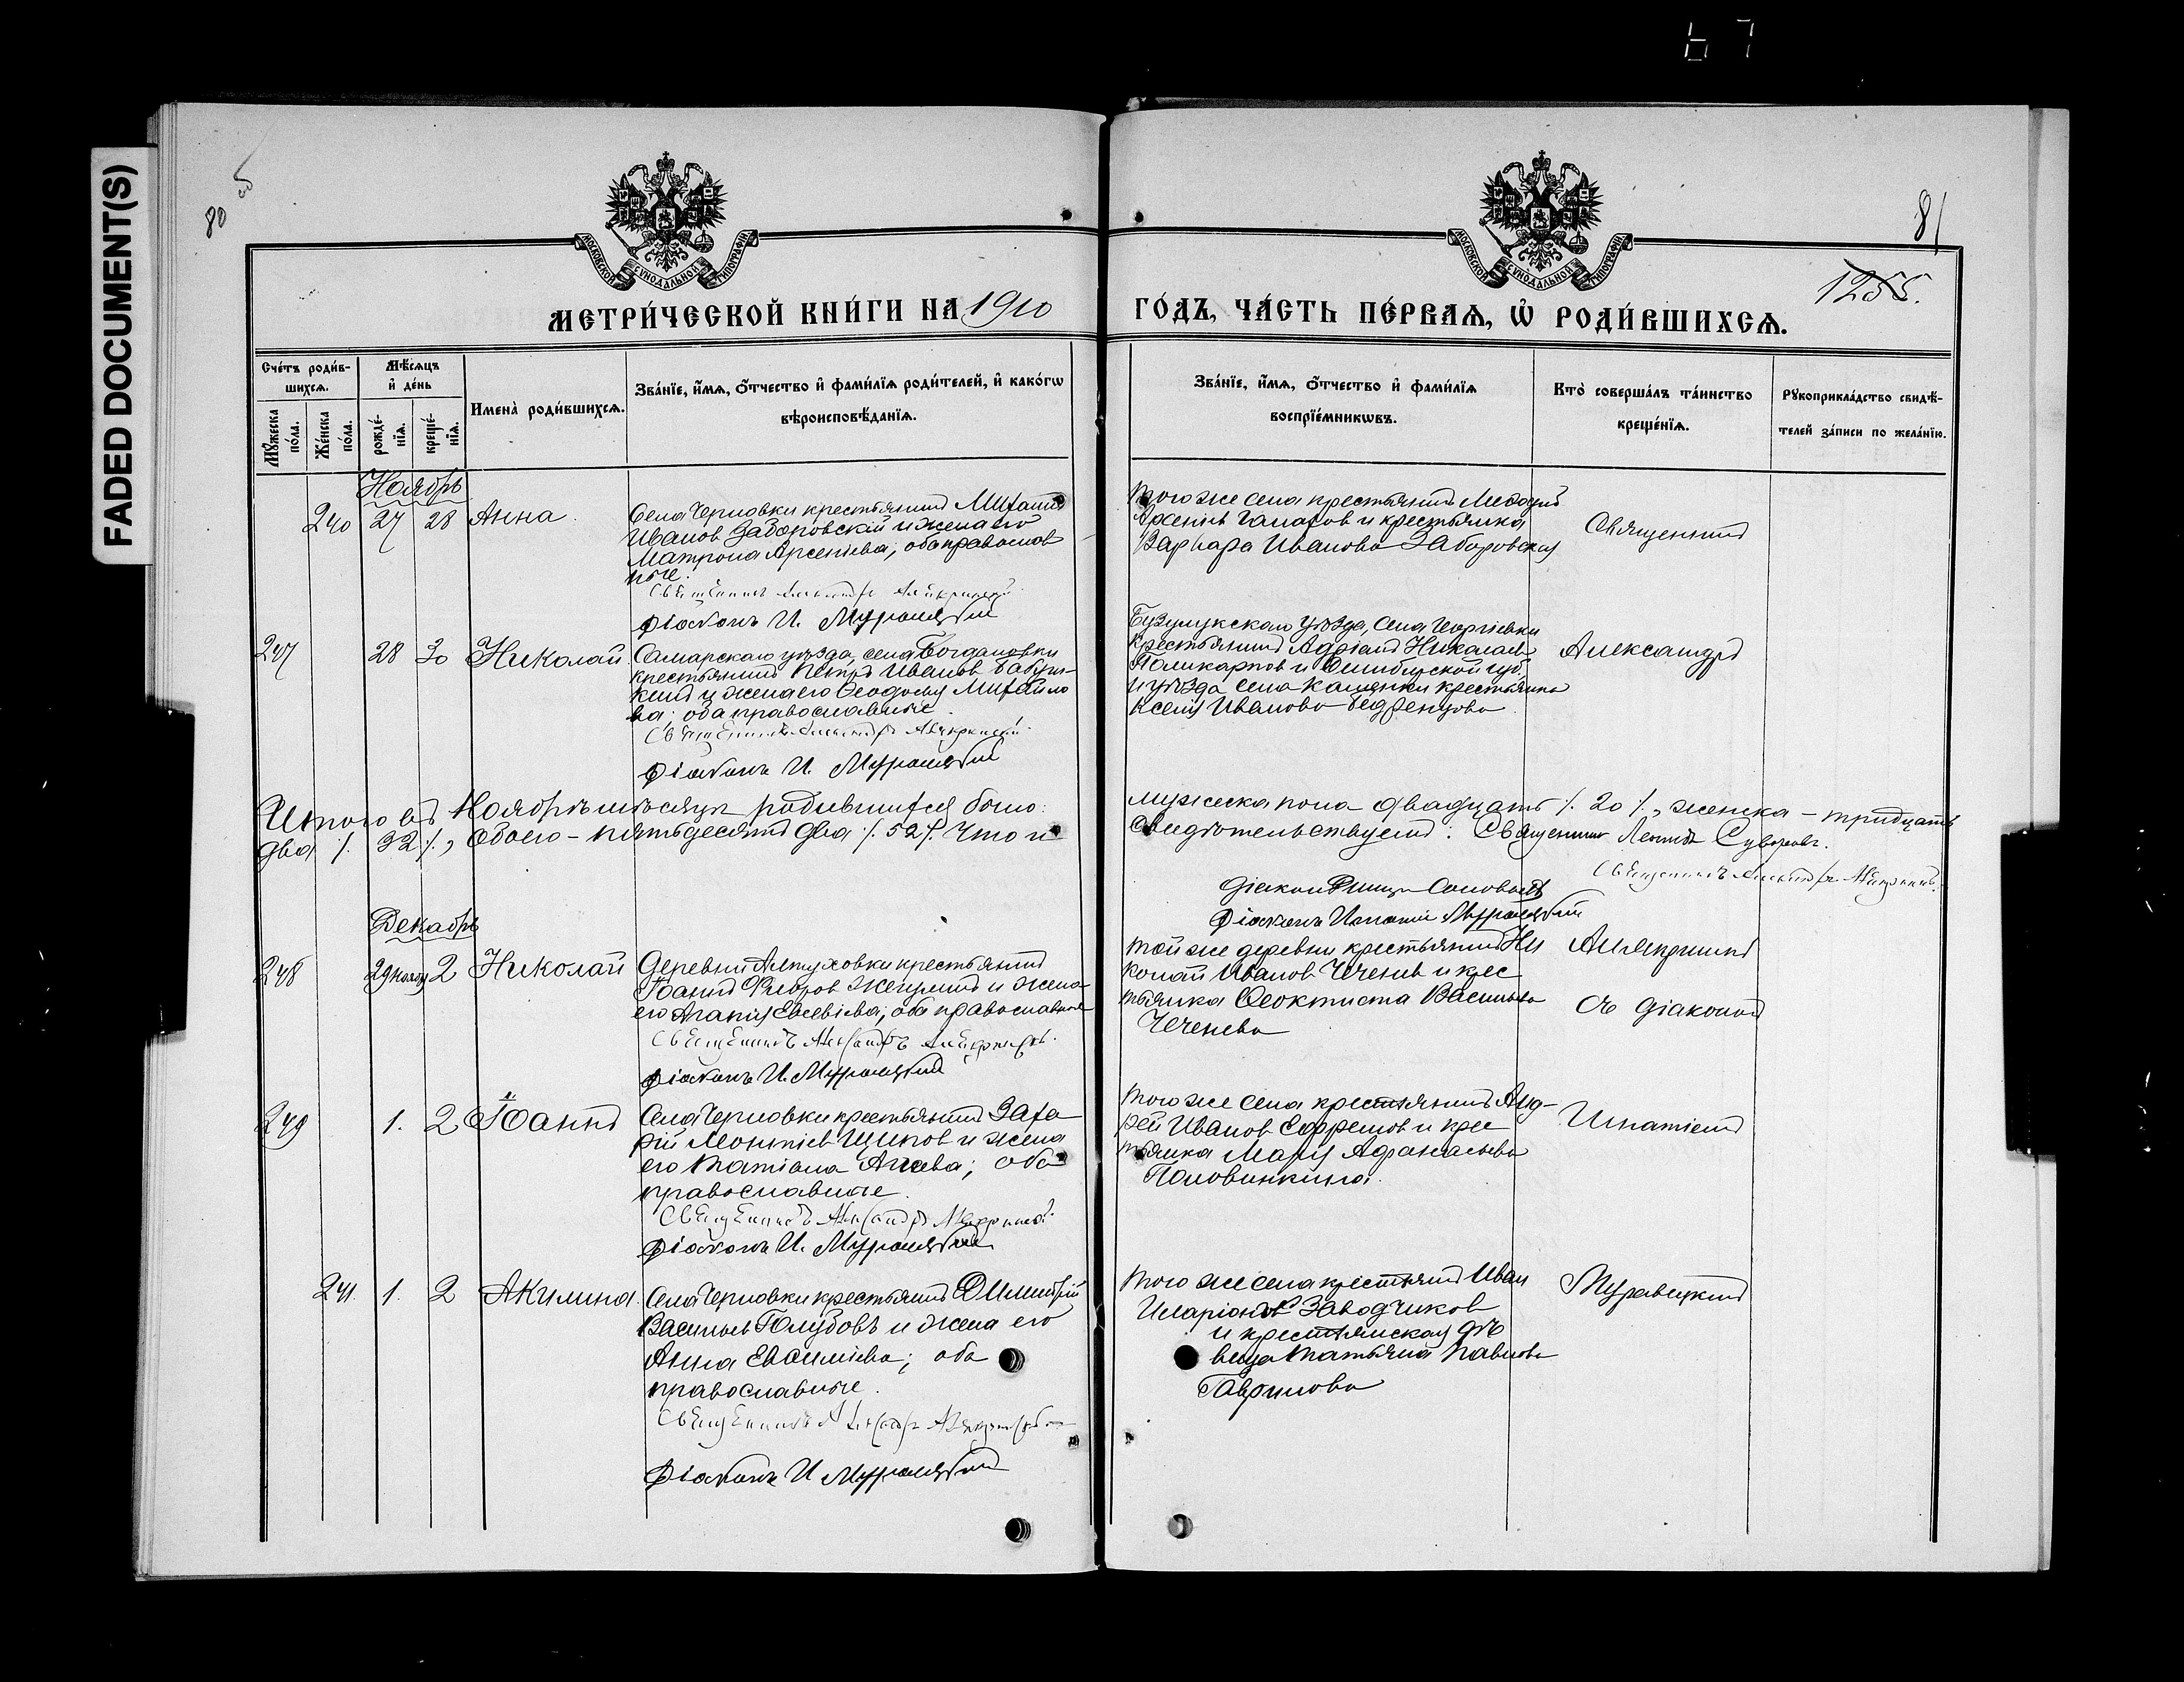 FADED DOCUMENT(S)
67
80 об
81
1255.
МОСКОВСКОЙ СѴНОДАЛЬНОЙ ТИПОГРАФІИ
МОСКОВСКОЙ СѴНОДАЛЬНОЙ ТИПОГРАФІИ
МЕТРИ́ЧЕСКОЙ КНИ́ГИ НА 1910
ГО́ДЪ, ЧА́СТЬ ПЕ́РВАѦ, Ѽ РОДИ́ВШИХСѦ.
Сче́тъ роди́в-
шихсѧ.
Мꙋ́жеска
по́ла.
Же́нска
по́ла.
Мѣ́сѧцъ
и҆ де́нь
рожде́-
нїѧ.
креще́-
нїѧ.
Имена̀ роди́вшихсѧ.
Зва́нїе, и҆́мѧ, ѻ҆́тчество и҆ фами́лїѧ роди́телей, и҆ како́гѡ
вѣроисповѣ́данїѧ.
Зва́нїе, и҆́мѧ, ѻ҆́тчество и҆ фами́лїѧ
воспрїе́мникѡвъ.
Кто̀ соверша́лъ та́инство
креще́нїѧ.
Рꙋкоприкла́дство свидѣ́-
телей за́писи по жела́нїю.
Ноябрь
240 27 28 Анна.
Села Черновки крестьянинъ Михаилъ
Иванов Заборовскій и жена его
Матрона Арсеніева; оба православ
ные.
Священникъ Александръ
Діаконъ И. Муравецкій
Того же села крестьянинъ Меѳодій
Арсеніев и крестьянка
Варвара Иванова Заборовская
Священникъ
247 28 30 Николай
Самарскаго уѣзда, села Богдановки
крестьянинъ Петръ Иванов
и жена его Ѳеодосія Михайло
ва; оба православные
Священникъ Александръ
Діаконъ И. Муравецкій
Бузулукскаго уѣзда, села Георгіевки
крестьянинъ Адріанъ Николаев
Поликарпов и Симбирской губ.
и уѣзда села Каменки крестьянка
Ксенія Иванова
Александръ
Итого въ Ноябрѣ мѣсяцѣ родившихся было:
мужеска пола двадцать /. 20 /., женска – тридцать
два /. 32 /., обоего – пятьдесятъ два /. 52 /. Что и
свидѣтельствуемъ: Священник Леонидъ Суворовъ.
Священникъ Александръ
Діаконъ Соловьевъ
Діаконъ Игнатій Муравецкій
Декабрь
248 29 ноябр 2 Николай
Деревни Алтуховки крестьянинъ
Іоаннъ Жегулинъ и жена
его Агапія Евсевіева; оба православные
Священникъ Александръ
Діаконъ И. Муравецкій
Той же деревни крестьянинъ Ни
колай Иванов Чеченев и крес
тьянка Ѳеоктиста Васильева
Чеченева
съ діакономъ
249 1. 2 Іоаннъ
Села Черновки крестьянинъ Заха
рій Леонтіев Щипов и жена
его Татіана; оба
православные.
Священникъ Александръ
Діаконъ И. Муравецкій
Того же села крестьянинъ Анд-
рей Иванов Ефремов и крес
тьянка Марія Афанасьева
Половинкина.
Игнатіемъ
241 1. 2 Акилина
Села Черновки крестьянинъ Димитрій
Васильев Голубовъ и жена его
Анна; оба
православные.
Священникъ Александръ
Діаконъ И Муравецкій
Того же села крестьянинъ Иван
Иларіонов Заводчиков
и крестьянская дѣ
вица Татьяна Павлова
Гаврилова
Муравецкимъ